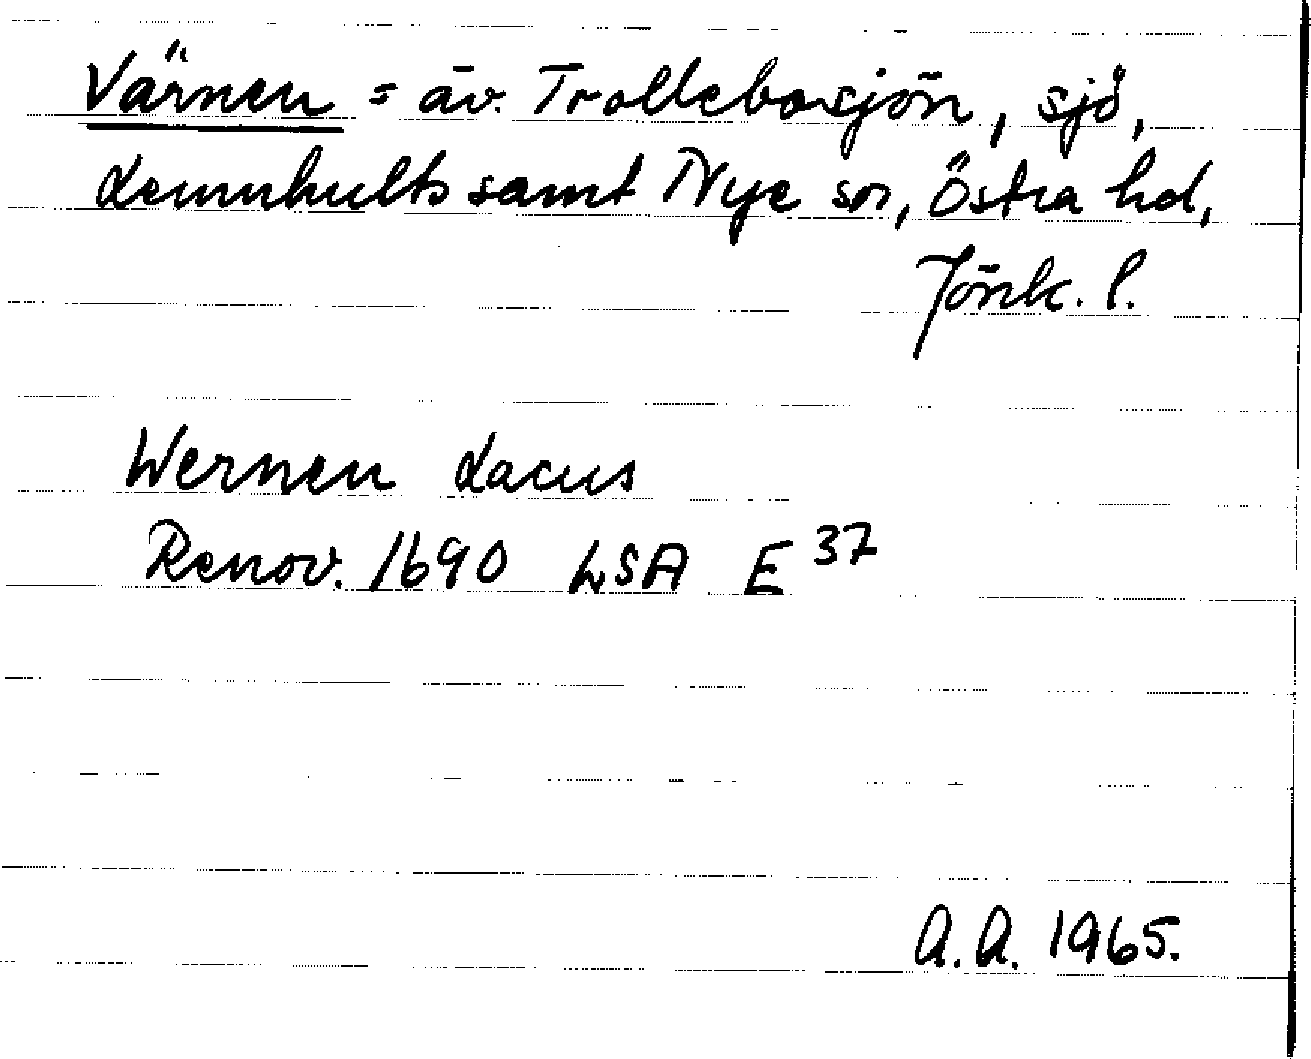 Värnen = äv. Trollebosjön, sjö,
Lemnhults samt Nye sn, Östra hd,
Jönk. l.
Wernen Lacus
Renov. 1690 LSA E 37
A.A. 1965.